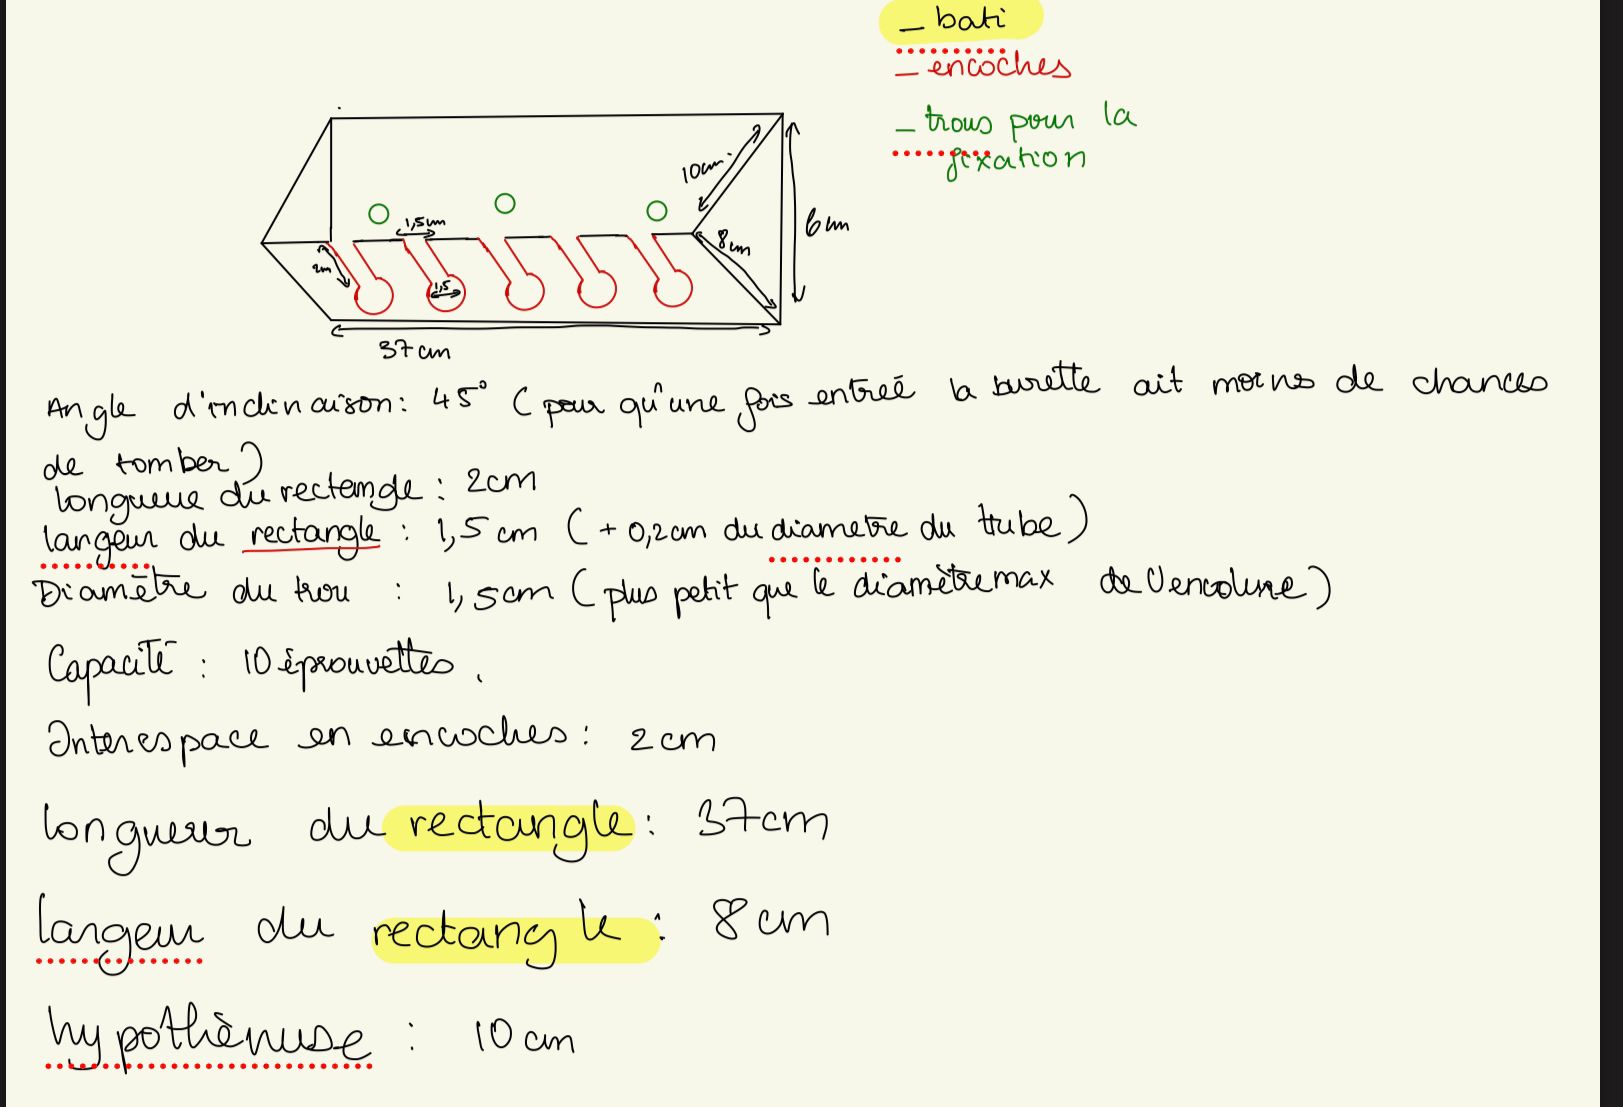 _ bati
_ encoches
_ trous pour la
fixation
10cm
1,5cm
6cm
8cm
2cm
1,5
37cm
Angle d'inclinaison: 45° (pour qu'une fois entreé la burette ait moins de chances
de tomber)
longueur du rectangle : 2cm
largeur du rectangle : 1,5cm (+ 0,2cm du diametre du tube)
Diamètre du trou : 1,5cm (plus petit que le diamètre max de l'encolure)
Capacité : 10 éprouvettes.
Interespace en encoches : 2cm
longueur du rectangle : 37cm
largeur du rectangle : 8cm
hypothènuse : 10cm